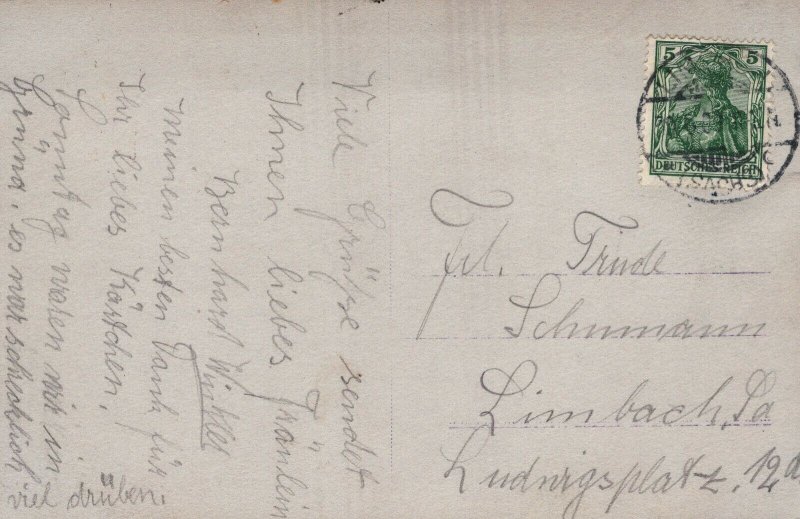 Viele Grüße sendet
Ihnen liebes Fräulein
Bernhard Winkler
Meinen besten Dank für
Ihr liebes Kärtchen.
Sonntag waren wir in
es war schrecklich
viel drüben.
5 5
DEUTSCHES REICH
(SACHS.)
Frl. Trude
Schumann
Limbach, Sa
Ludwigsplatz. 12,d